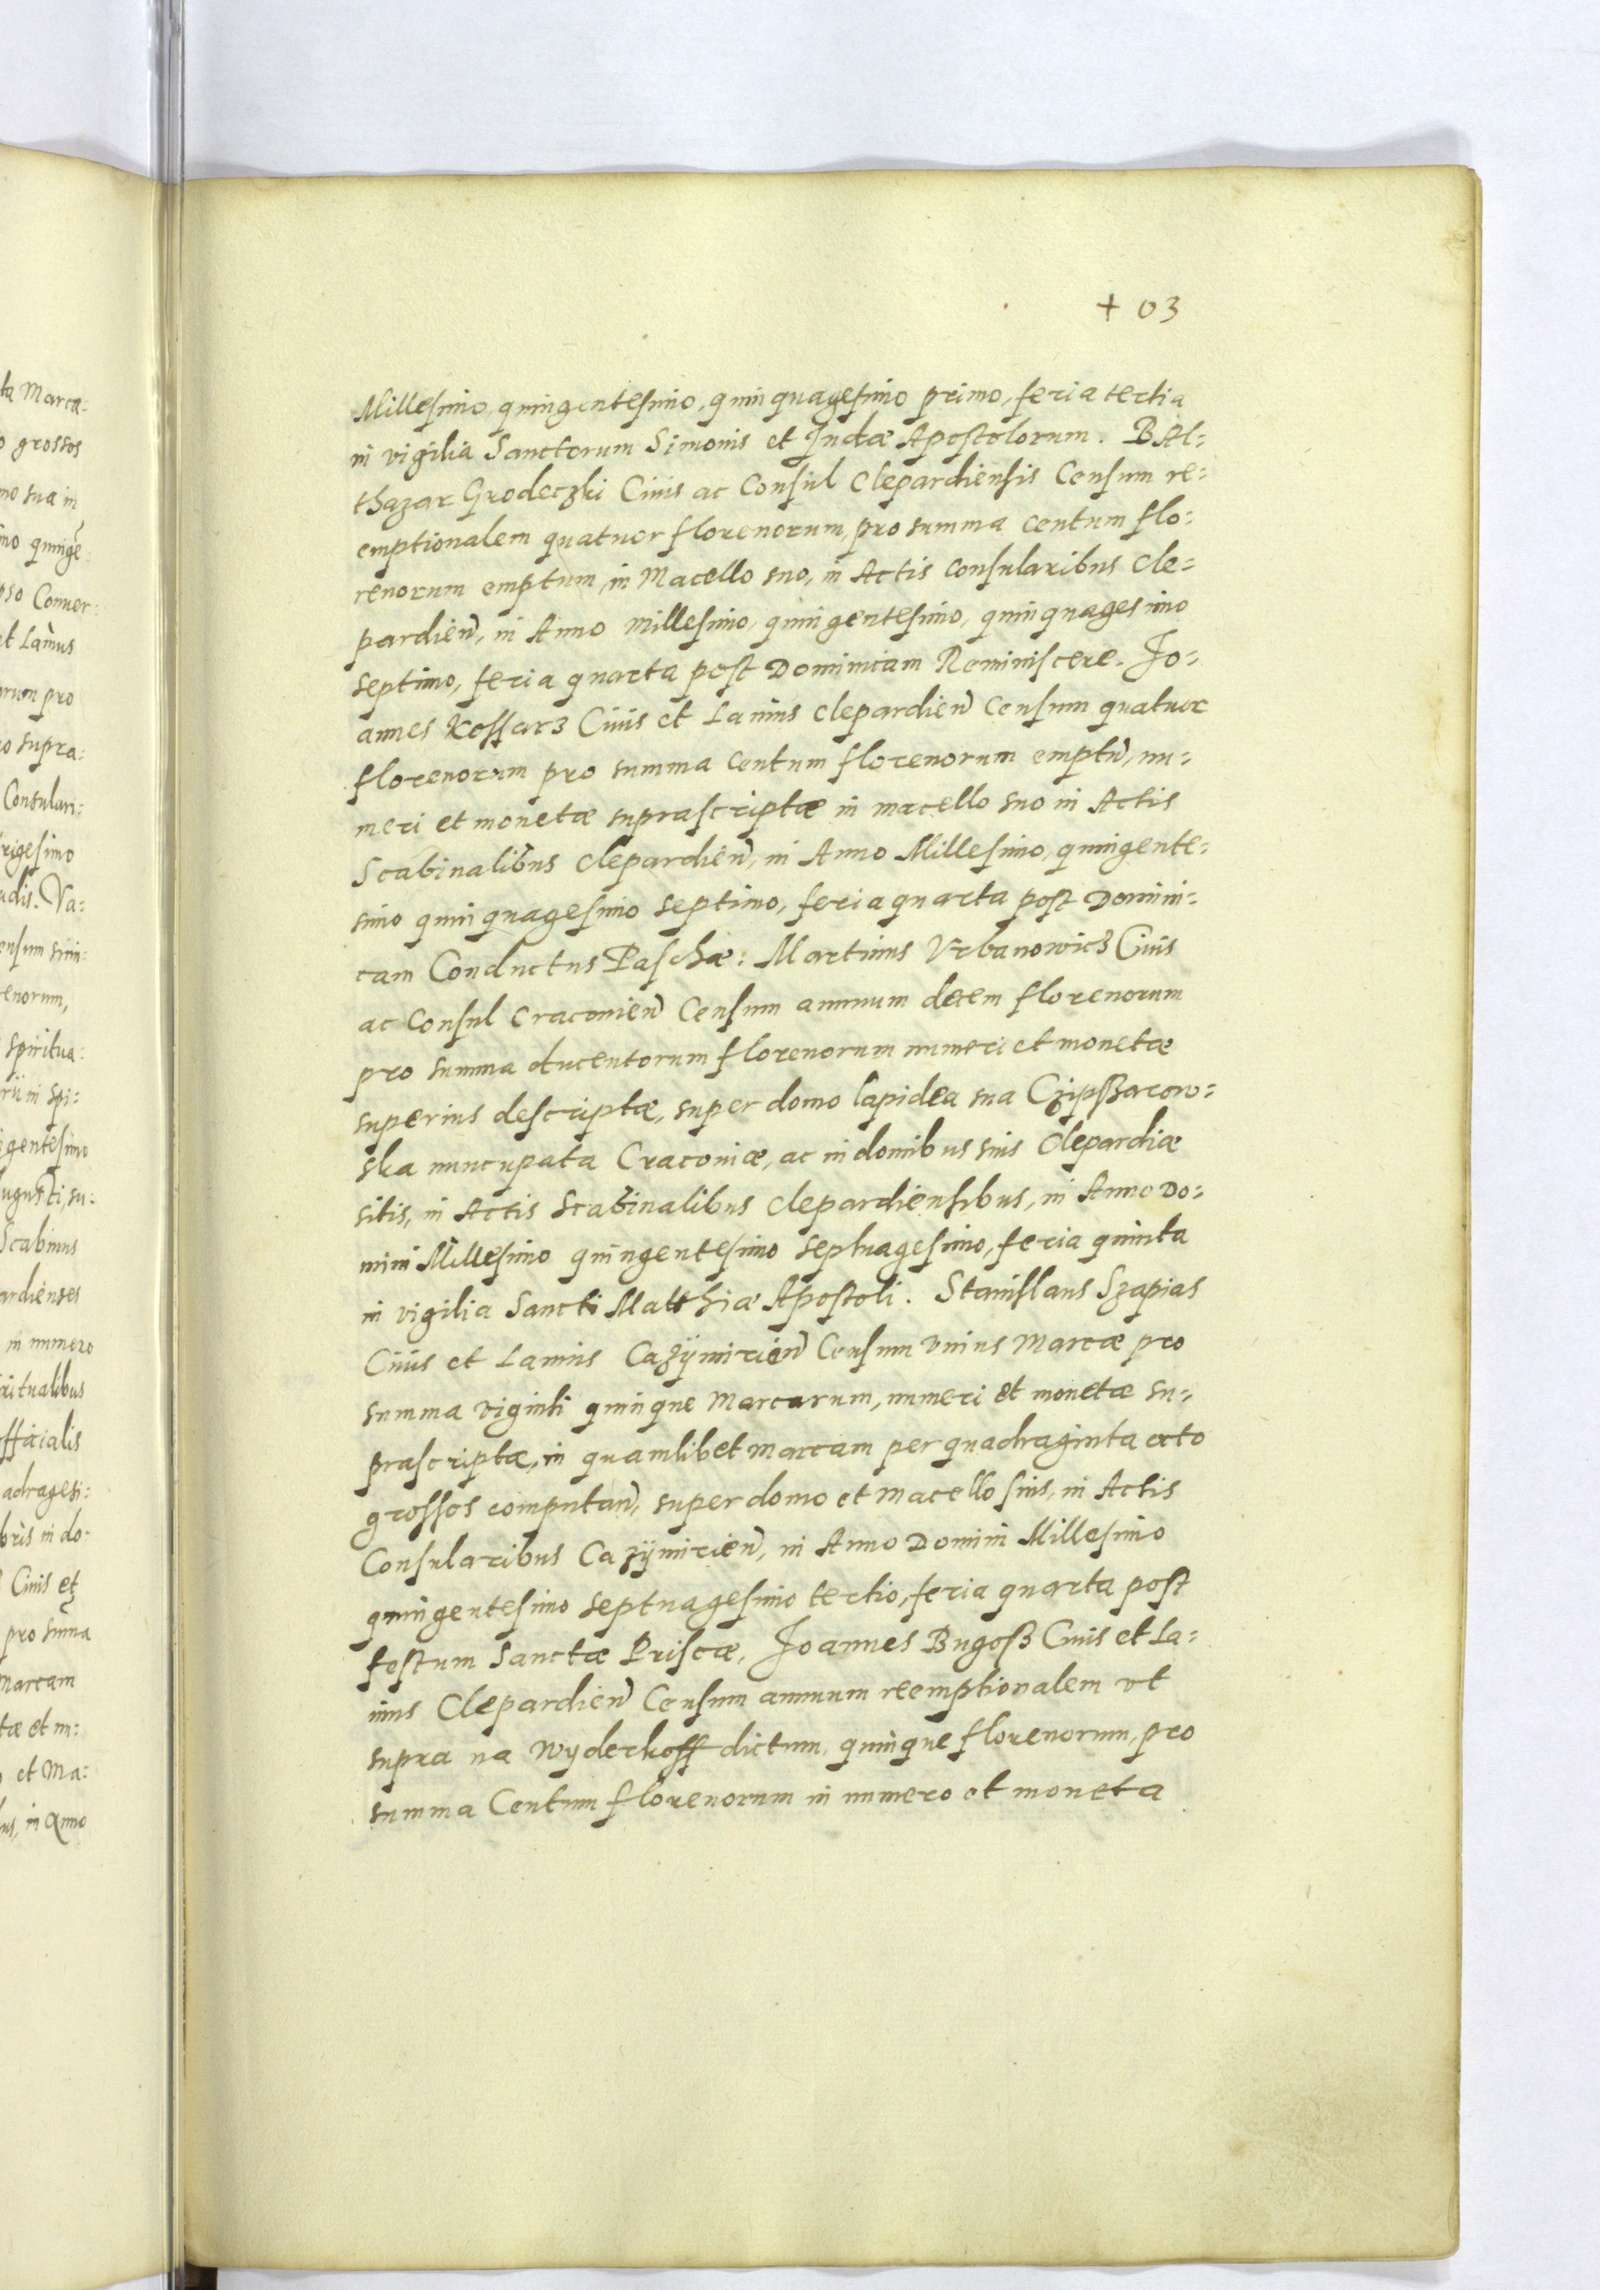 + 03
Millesimo, quingentesimo, quinquagesimo primo, feria tertia
in vigilia Sanctorum Simonis et Judæ Apostolorum. BAl-
thazar Grodeczki Ciuis ac Consul Clepardiensis Censum re-
emptionalem quatuor florenorum, pro summa centum flo-
renorum emptum, in Macello suo, in Actis Consularibus Cle-
pardien̄, in Anno millesimo, quingentesimo, quinquagesimo
septimo, feria quarta post Dominicam Reminiscere. Jo-
annes Kossarz Ciuis et Lanius clepardien̄ Censum quatuor
florenorum pro summa centum florenorum emptū, nu-
meri et monetæ suprascriptæ in macello suo in Actis
Scabinalibus clepardien̄, in Anno Millesimo, quingente-
simo quinquagesimo septimo, feria quarta post Domini-
cam Conductus Paschæ: Martinus Vrbanowicz Ciuis
ac Consul Cracouien̄ Censum annuum decem florenorum
pro summa ducentorum florenorum numeri et monetæ
superius descriptæ, super domo lapidea sua Czipßarcow-
ska nuncupata Cracouiæ, ac in domibus suis Clepardiæ
sitis, in Actis Scabinalibus Clepardiensibus, in Anno Do-
mini Millesimo quingentesimo septuagesimo, feria quinta
in vigilia Sancti Matthiæ Apostoli. Stanislaus Szapias
Ciuis et Lanius Cazÿmirien̄ Censum vnius Marcæ pro
summa viginti quinque Marcarum, numeri et monetæ su-
prascriptæ, in quamlibet marcam per quadraginta octo
grossos computan̄, super domo et macello suis, in Actis
Consularibus Cazÿmirien̄, in Anno Domini Millesimo
quingentesimo septuagesimo tertio, feria quarta post
festum Sanctæ Priscæ, Joannes Bugoß Ciuis et La-
nius Clepardien̄ Censum annuum reemptionalem vt
supra na Wyderkoff dictum, quinque florenorum, pro
summa Centum florenorum in numero et moneta